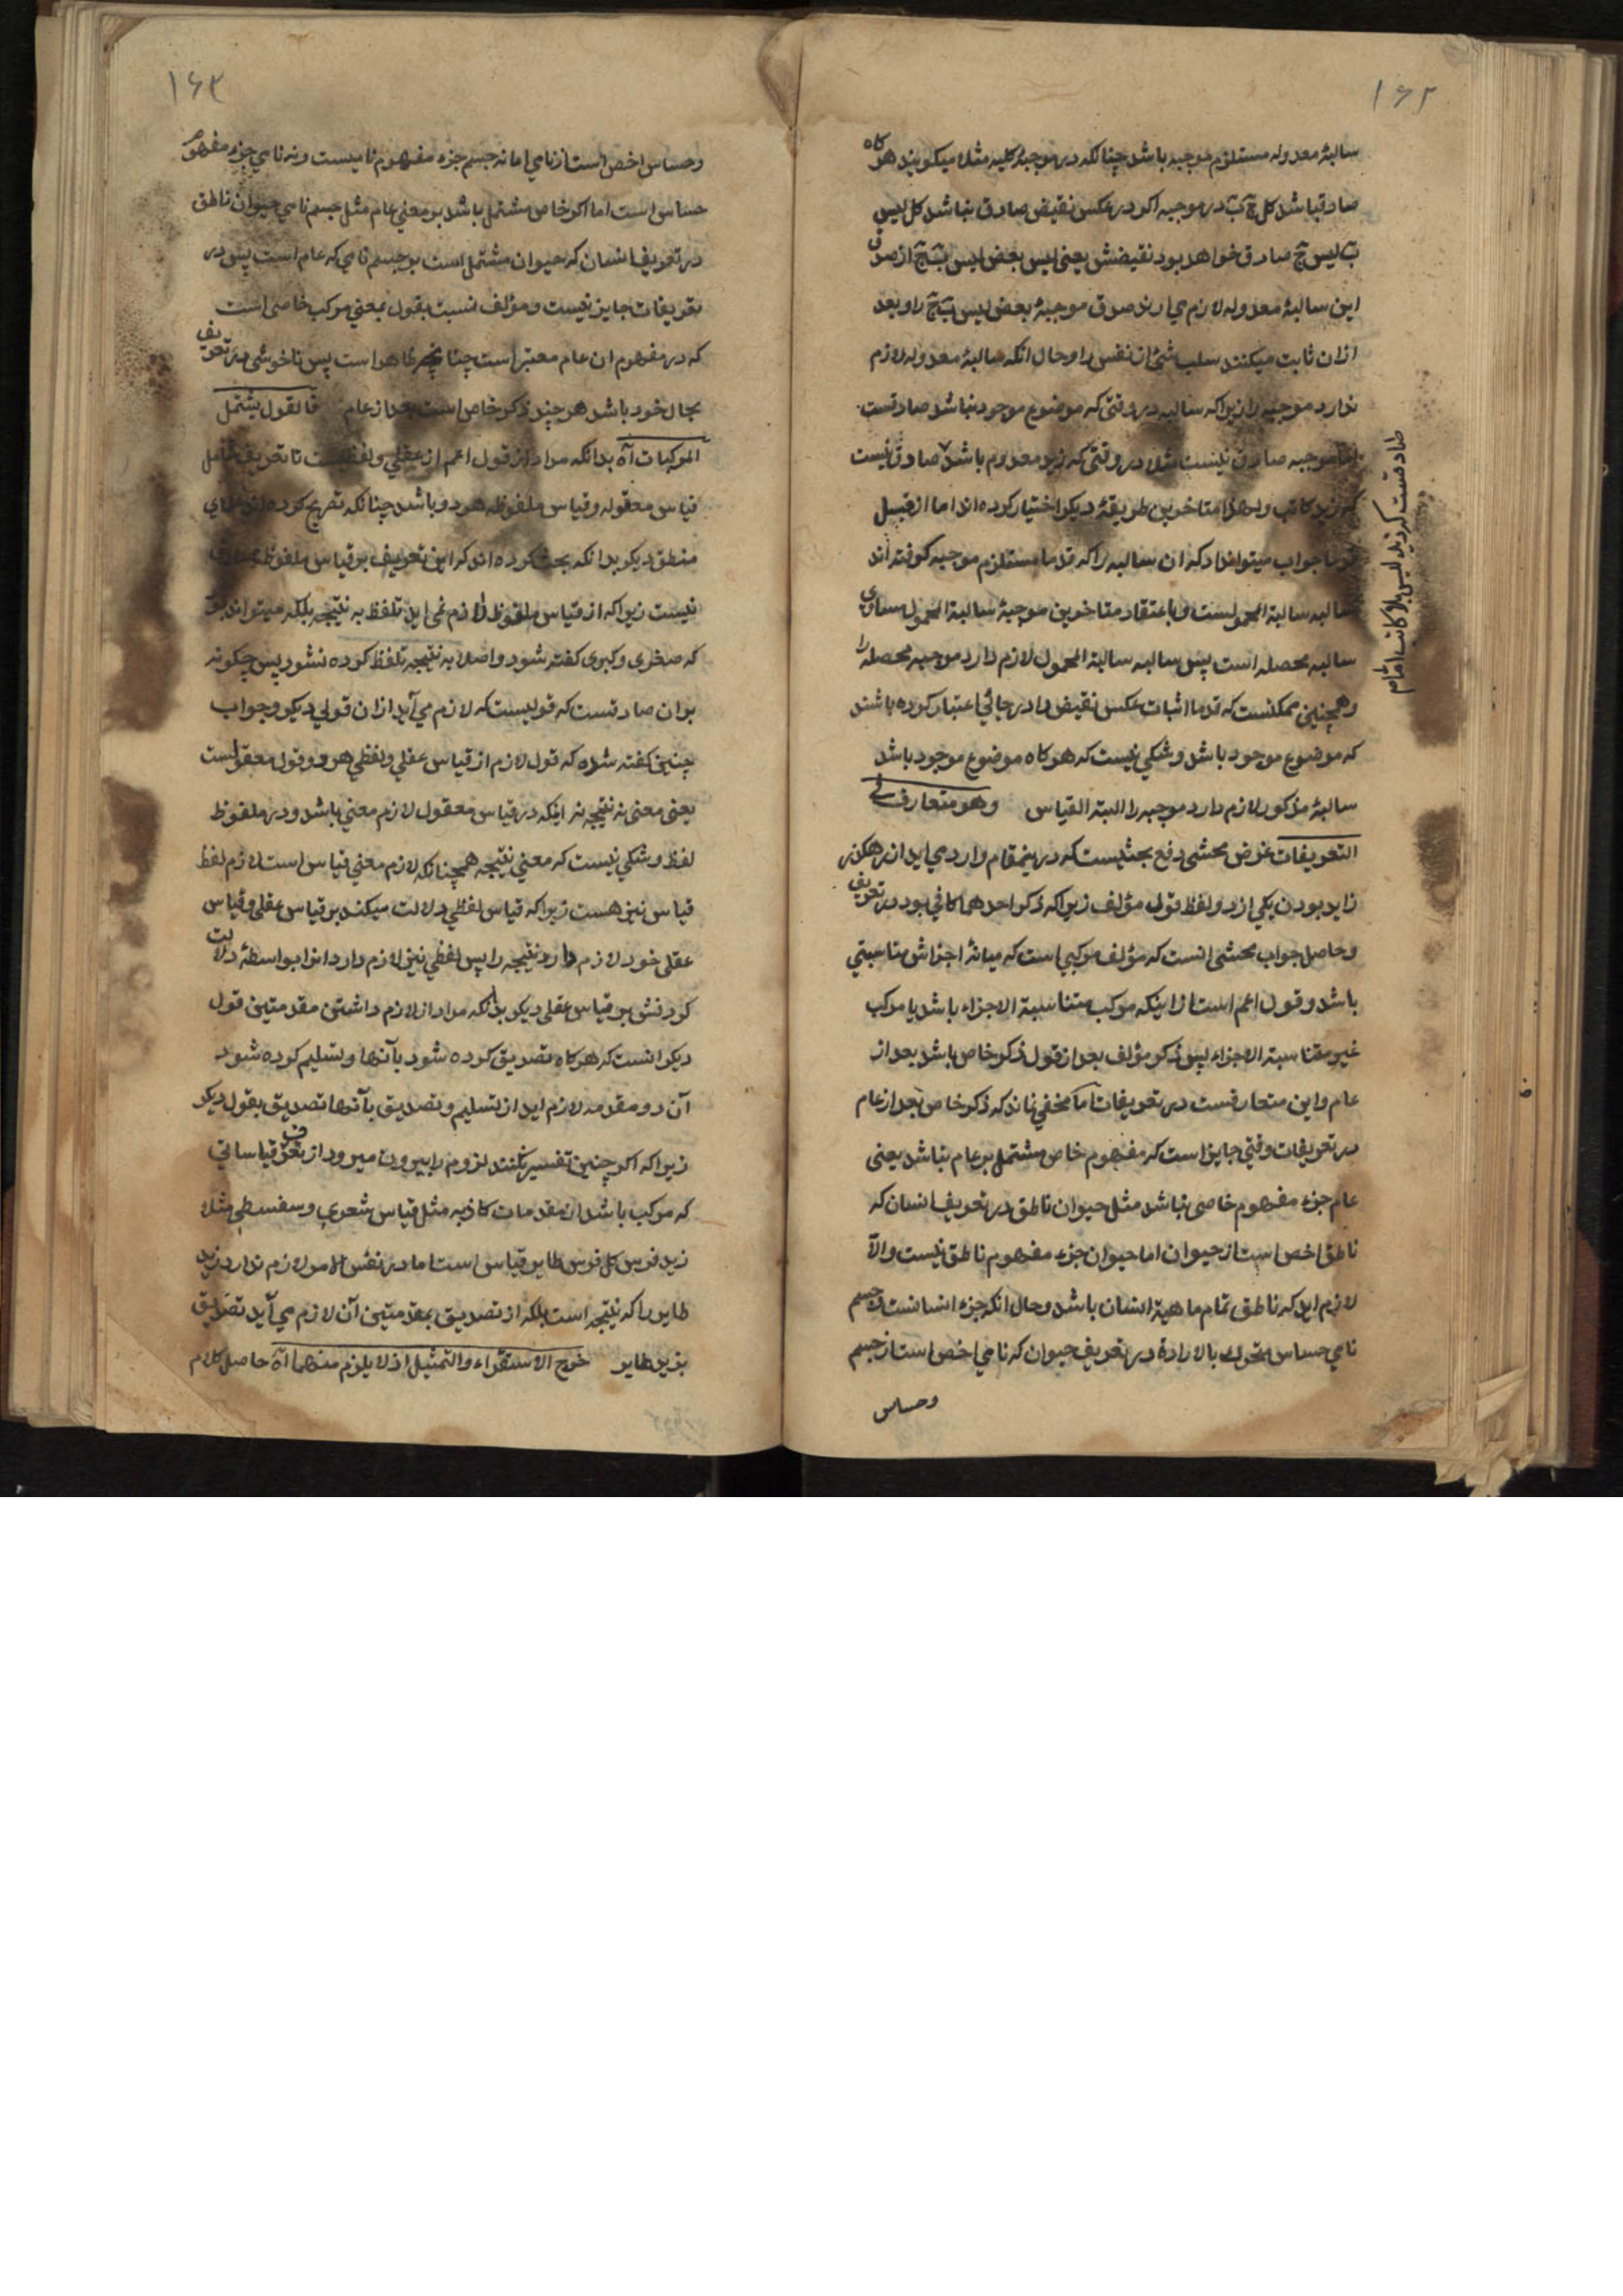 ۱۶۲
سالبهٔ معدوله مستلزم موجبه باشد چنانکه در موجبهٔ کلیه مثلا میکویند هر کاه
صادقباشد کل ج ب در موجبه اکر در عکس نقیض صادق نباشد کل لیس
ب لیس ج صادق خواهد بود نقیضش یعنی لیس بعض لیس ب ج از صدق
این سالبهٔ معدوله لازم می اید صدق موجبهٔ بعض لیس ب ج را و بعد
ازان ثابت میکنند سلب شئ از نفس را و حال انکه سالبهٔ معدوله لازم
ندارد موجبه را زیرا که سالبه در وقتی که موضوع موجود نباشد صادقست
اما موجبه صادق نیست مثلا در وقتی که زید معدوم باشد صادق نیست
که زید کاتب و لهذا متاخرین طریقهٔ دیکر اختیار کرده اند اما از قبل
قدما جواب میتواند داد که ان سالبه را که قدما مستلزم موجبه کرفته اند
سالبه سالبة المحمولست و باعتقاد متاخرین موجبهٔ سالبة المحمول مساوی
سالبه محصله است پس سالبه سالبة المحمول لازم دارد موجبه محصله را
و همچنین ممکنست که قدما اثبات عکس نقیض را در جائی اعتبار کرده باشند
که موضوع موجود باشد و شکی نیست که هرکاه موضوع موجود باشد
سالبهٔ مذکور لازم دارد موجبه را البته القیاس وهو متعارف فی
التعریفات غرض محشی دفع بحثیست که در ینمقام وارد می اید از رهکذر
زاید بودن یکی از دو لفظ قول مؤلف زیرا که ذکر احدهما کافی بود در تعریف
و حاصل جواب محشی انست که مؤلف مرکبی است که میانهٔ اجزاش مناسبتی
باشد و قول اعم است از اینکه مرکب متناسبة الاجزاء باشد یا مرکب
غیر متناسبة الاجزاء پس ذکر مؤلف بعد از قول ذکر خاص باشد بعد از
عام و این متعارفست در تعریفات اما مخفی نماند که ذکر خاص بعد از عام
در تعریفات وقتی جایز است که مفهوم خاص مشتمل بر عام نباشد یعنی
عام جزء مفهوم خاص نباشد مثل حیوان ناطق در تعریف انسان که
ناطق اخص است از حیوان اما حیوان جزء مفهوم ناطق نیست والا
لازم اید که ناطق تمام ماهیة انسان باشد و حال انکه جزء انسانست و جسم
نامی حساس متحرک بالارادة در تعریف حیوان که نامی اخص است از جسم
وحساس
صادقست که زید لیس بلا کاتب اما
۱۶۳
وحساس اخص است از نامی اما نه جسم جزء مفهوم نامیست ونه نامی جزء مفهوم
حساس است اما اکر خاص مشتمل باشد بر معنی عام مثل جسم نامی حیوان ناطق
در تعریف انسان که حیوان مشتمل است بر جسم نامی که عام است پس در
تعریفات جایز نیست و مؤلف نسبت بقول بمعنی مرکب خاصی است
که در مفهوم ان عام معتبر است چنانچه ظاهر است پس ناخوشی در تعریف
بحال خود باشد هر چند ذکر خاص است بعد از عام فالقول یشتمل
المرکبات آه بدانکه مراد از قول اعم از عقلی و لفظیست تا تعریف شامل
قیاس معقوله و قیاس ملفوظه هر دو باشد چنانکه تصریح کرده اند علمای
منطق دیکر بدانکه بحث کرده اند که این تعریف بر قیاس ملفوظ صادق
نیست زیرا که از قیاس ملفوظ لازم نمی اید تلفظ به نتیجه بلکه میتواند بود
که صغری و کبری کفته شود و اصلا به نتیجه تلفظ کرده نشود پس چکونه
بر ان صادقست که قولیست که لازم می آید از ان قولی دیکر و جواب
چنین کفته شده که قول لازم از قیاس عقلی و لفظی هر دو قول معقولست
یعنی معنی نه نتیجه نه اینکه در قیاس معقول لازم معنی باشد و در ملفوظ
لفظ و شکی نیست که معنی نتیجه همچنانکه لازم معنی قیاس است لازم لفظ
قیاس نیز هست زیرا که قیاس لفظی دلالت میکند بر قیاس عقلی و قیاس
عقلی خود لازم دارد نتیجه را پس لفظی نیز لازم دارد انرا بواسطهٔ دلالت
کردنش بر قیاس عقلی دیکر بدانکه مراد از لازم داشتن مقدمتین قول
دیکر انست که هرکاه تصدیق کرده شود بآنها و تسلیم کرده شود
آن دو مقدمه لازم اید از تسلیم و تصدیق بآنها تصدیق بقول دیکر
زیرا که اکر چنین تفسیر نکنند لزوم را بیرون میرود از تعریف قیاساتی
که مرکب باشد از مقدمات کاذبه مثل قیاس شعری و سفسطی مثلا
زید فرس کل فرس طایر قیاس است اما در نفس الامر لازم ندارد زید
طایر را که نتیجه است بلکه از تصدیق بمقدمتین آن لازم می آید تصدیق
بزید طایر خرج الاستقراء والتمثیل اذ لا یلزم منهما آه حاصل کلام